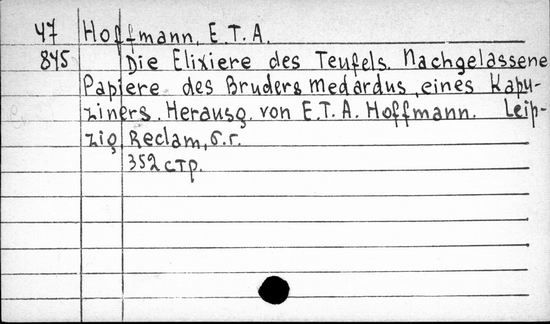 47 Hoffmann, E.T.A.
845 Die Elixiere des Teufels. Nachgelassene
Papiere des Bruders Medardus eines Kapu-
ziners. Herausg. von E.T.A. Hoffmann. Leip-
zig Reclam, б.г.
352 стр.